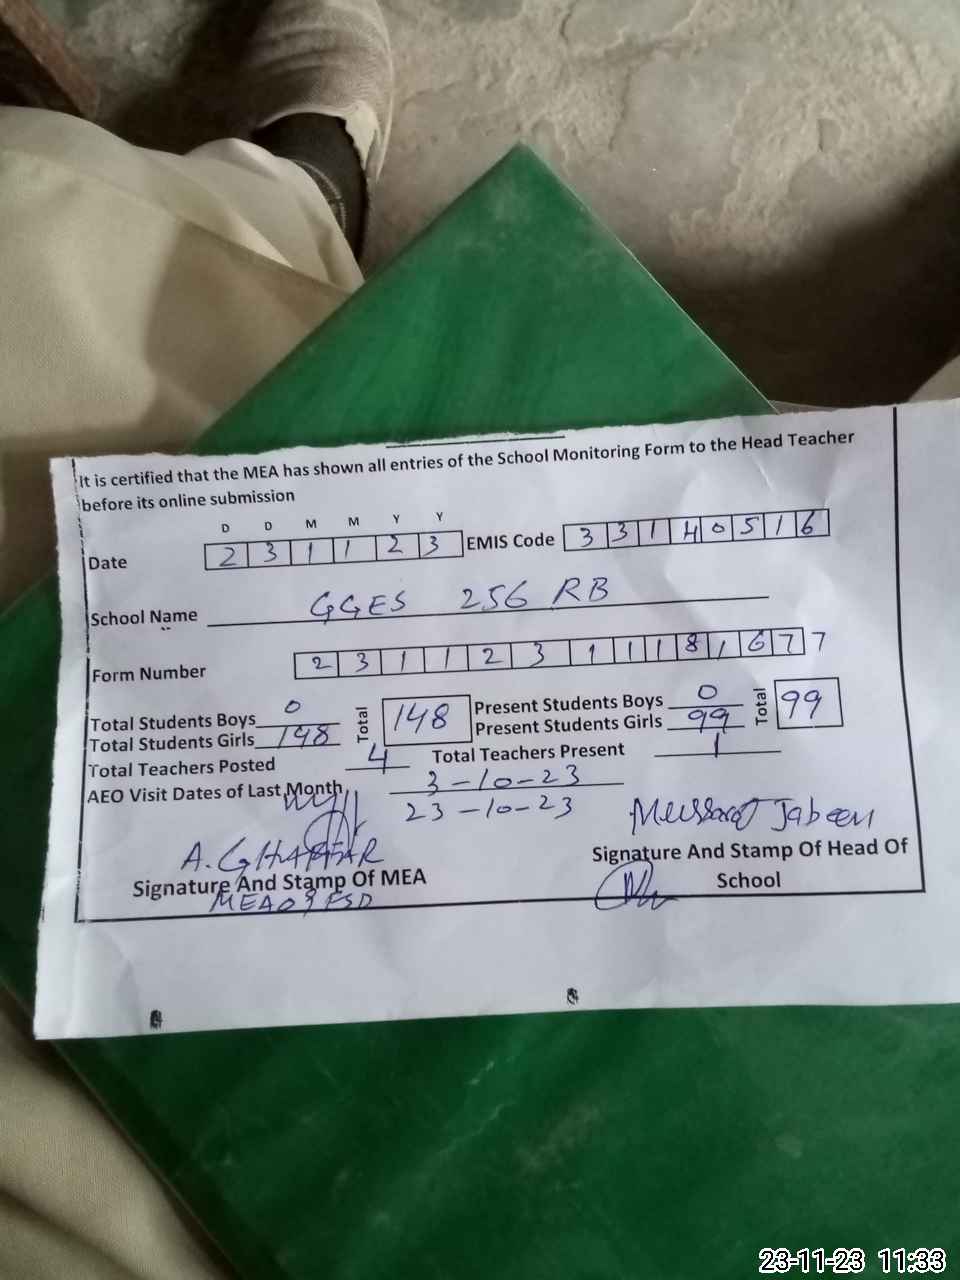 It is certified that the MEA has shown all entries of the School Monitoring Form to the Head Teacher
before its online submission
D D M M Y Y
Date 2 3 1 1 2 3 EMIS Code 3 3 1 4 0 5 1 6
School Name GGES 256 RB
Form Number 2 3 1 1 2 3 1 1 1 8 1 6 7 7 7
Total Students Boys 0 Total 148 Present Students Boys 0 Total 99
Total Students Girls 148 Present Students Girls 99
Total Teachers Posted 4 Total Teachers Present 1
AEO Visit Dates of Last Month 3-10-23
23-10-23
A. GHAFFAR Mussarat Jabeen
Signature And Stamp Of MEA Signature And Stamp Of Head Of
School
MEA09 FSD
23-11-23 11:33